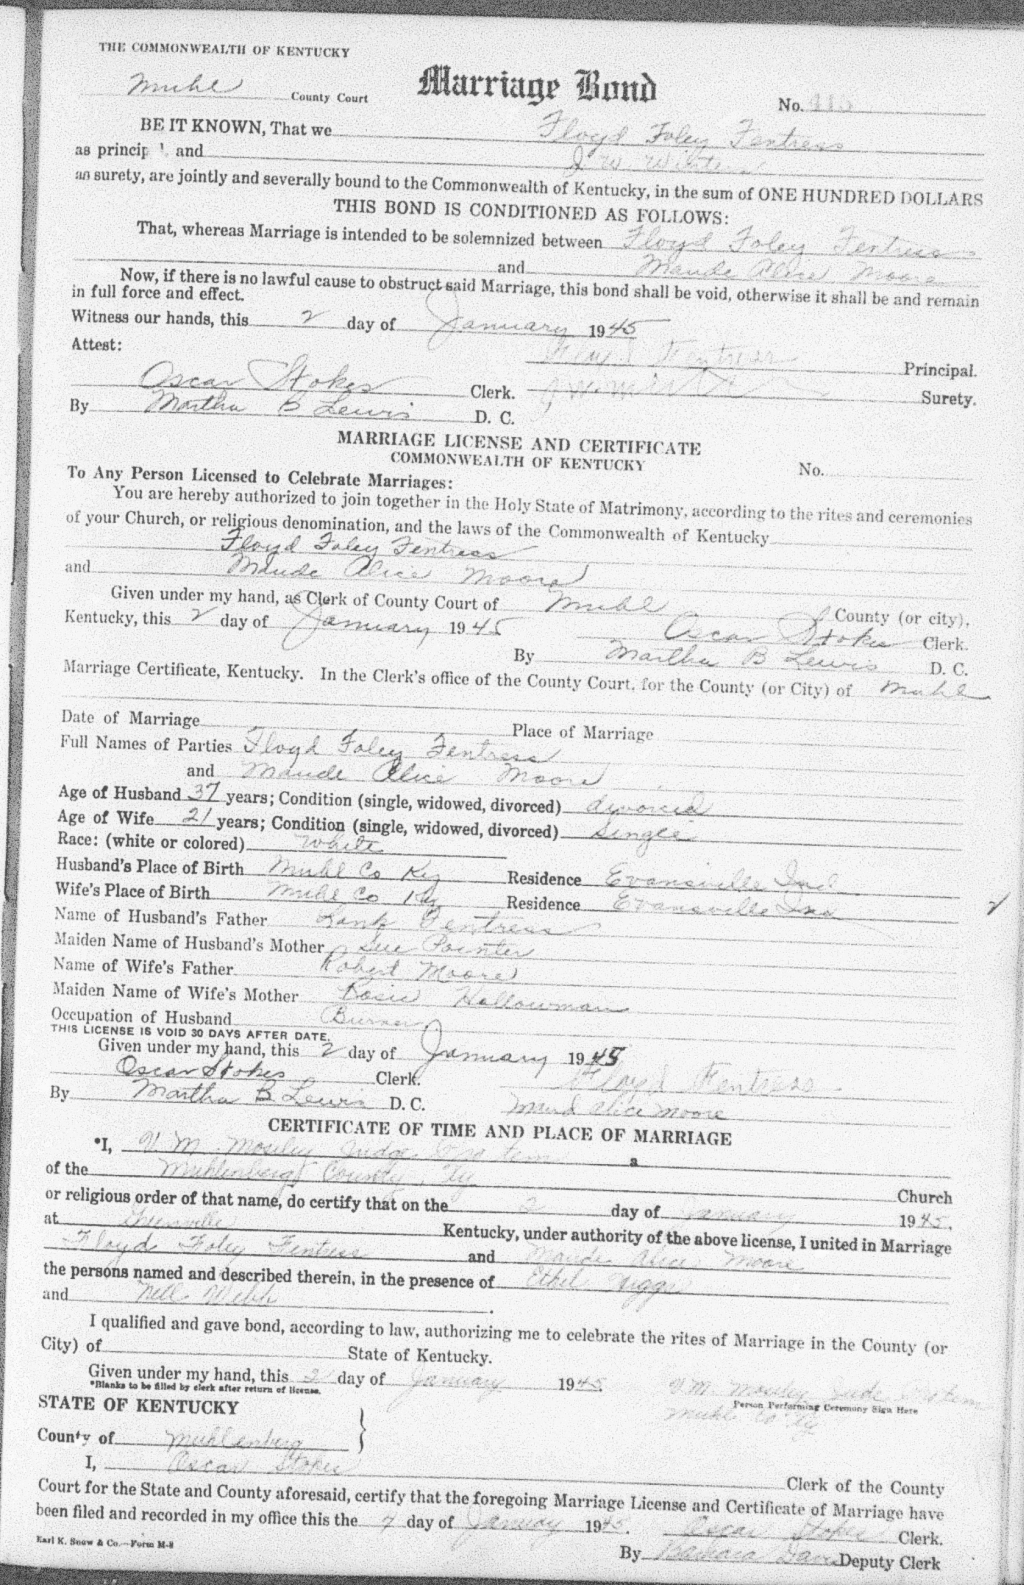 THE COMMONWEALTH OF KENTUCKY
Muhl County Court Marriage Bond No. 415
BE IT KNOWN, That we Floyd Foley Fentress
as princip l, and J W White
as surety, are jointly and severally bound to the Commonwealth of Kentucky, in the sum of ONE HUNDRED DOLLARS
THIS BOND IS CONDITIONED AS FOLLOWS:
That, whereas Marriage is intended to be solemnized between Floyd Foley Fentress
and Maude Alice Moore
Now, if there is no lawful cause to obstruct said Marriage, this bond shall be void, otherwise it shall be and remain
in full force and effect.
Witness our hands, this 2 day of January 1945
Attest: Floyd Fentress Principal.
Oscar Stokes Clerk. Surety.
By Martha B Lewis D. C.
MARRIAGE LICENSE AND CERTIFICATE
COMMONWEALTH OF KENTUCKY No.
To Any Person Licensed to Celebrate Marriages:
You are hereby authorized to join together in the Holy State of Matrimony, according to the rites and ceremonies
of your Church, or religious denomination, and the laws of the Commonwealth of Kentucky
Floyd Foley Fentress
and Maude Alice Moore
Given under my hand, as Clerk of County Court of Muhl County (or city),
Kentucky, this 2 day of January 1945 Oscar Stokes Clerk.
By Martha B Lewis D. C.
Marriage Certificate, Kentucky. In the Clerk's office of the County Court, for the County (or City) of Muhl
Date of Marriage Place of Marriage
Full Names of Parties Floyd Foley Fentress
and Maude Alice Moore
Age of Husband 37 years; Condition (single, widowed, divorced) divorced
Age of Wife 21 years; Condition (single, widowed, divorced) Single
Race: (white or colored) White
Husband's Place of Birth Muhl Co Ky Residence Evansville Ind
Wife's Place of Birth Muhl Co Ky Residence Evansville Ind
Name of Husband's Father Fentress
Maiden Name of Husband's Mother Sue Pointer
Name of Wife's Father Robert Moore
Maiden Name of Wife's Mother Rosie Hallowman
Occupation of Husband Burner
THIS LICENSE IS VOID 30 DAYS AFTER DATE.
Given under my hand, this 2 day of January 1945
Oscar Stokes Clerk. Floyd Fentress
By Martha B Lewis D. C. Maud Alice Moore
CERTIFICATE OF TIME AND PLACE OF MARRIAGE
*I, V. M. Mosley Judge Pro tem a
of the Muhlenberg County, Ky Church
or religious order of that name, do certify that on the 2 day of January 1945,
at Greenville Kentucky, under authority of the above license, I united in Marriage
Floyd Foley Fentress and Maude Alice Moore
the persons named and described therein, in the presence of Ethel
and Nell Webb .
I qualified and gave bond, according to law, authorizing me to celebrate the rites of Marriage in the County (or
City) of State of Kentucky.
Given under my hand, this 2 day of January 1945. V. M. Mosley Jude Protem
*Blanks to be filled by clerk after return of license. Person Performing Ceremony Sign Here
STATE OF KENTUCKY Muhl Co Ky
County of Muhlenberg }
I, Oscar Stokes Clerk of the County
Court for the State and County aforesaid, certify that the foregoing Marriage License and Certificate of Marriage have
been filed and recorded in my office this the 7 day of January 1945. Oscar Stokes Clerk.
Earl K. Snow & Co.—Form M-8 By Barbara Davis Deputy Clerk